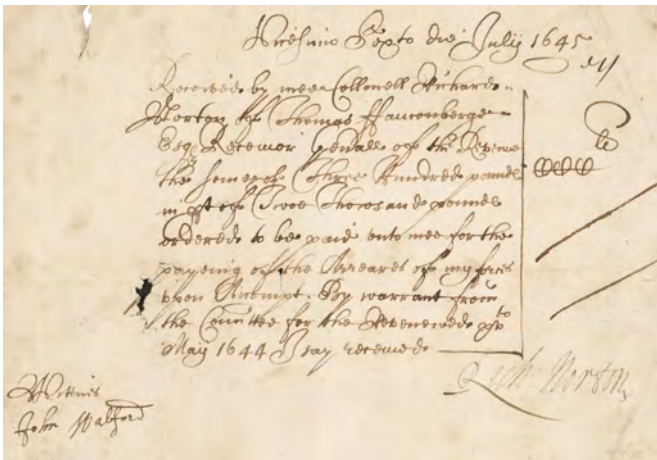 Vicesimo Sexto die July 1645
Received by mee Collonell Richard
Norton of Thomas Ffauconberge
Esqr Receivor Genall of the Revenue
the some of Three Hundred pounds
in pt of Twoo Thousand pounds
ordered to be paid unto mee for the
payeing of the Arreares of my forces
upon Accompt. By warrant from
the Comittee for the Revenewe
May 1644 I say received
li
ccc
Rich: Norton
Wittnes
John Walford